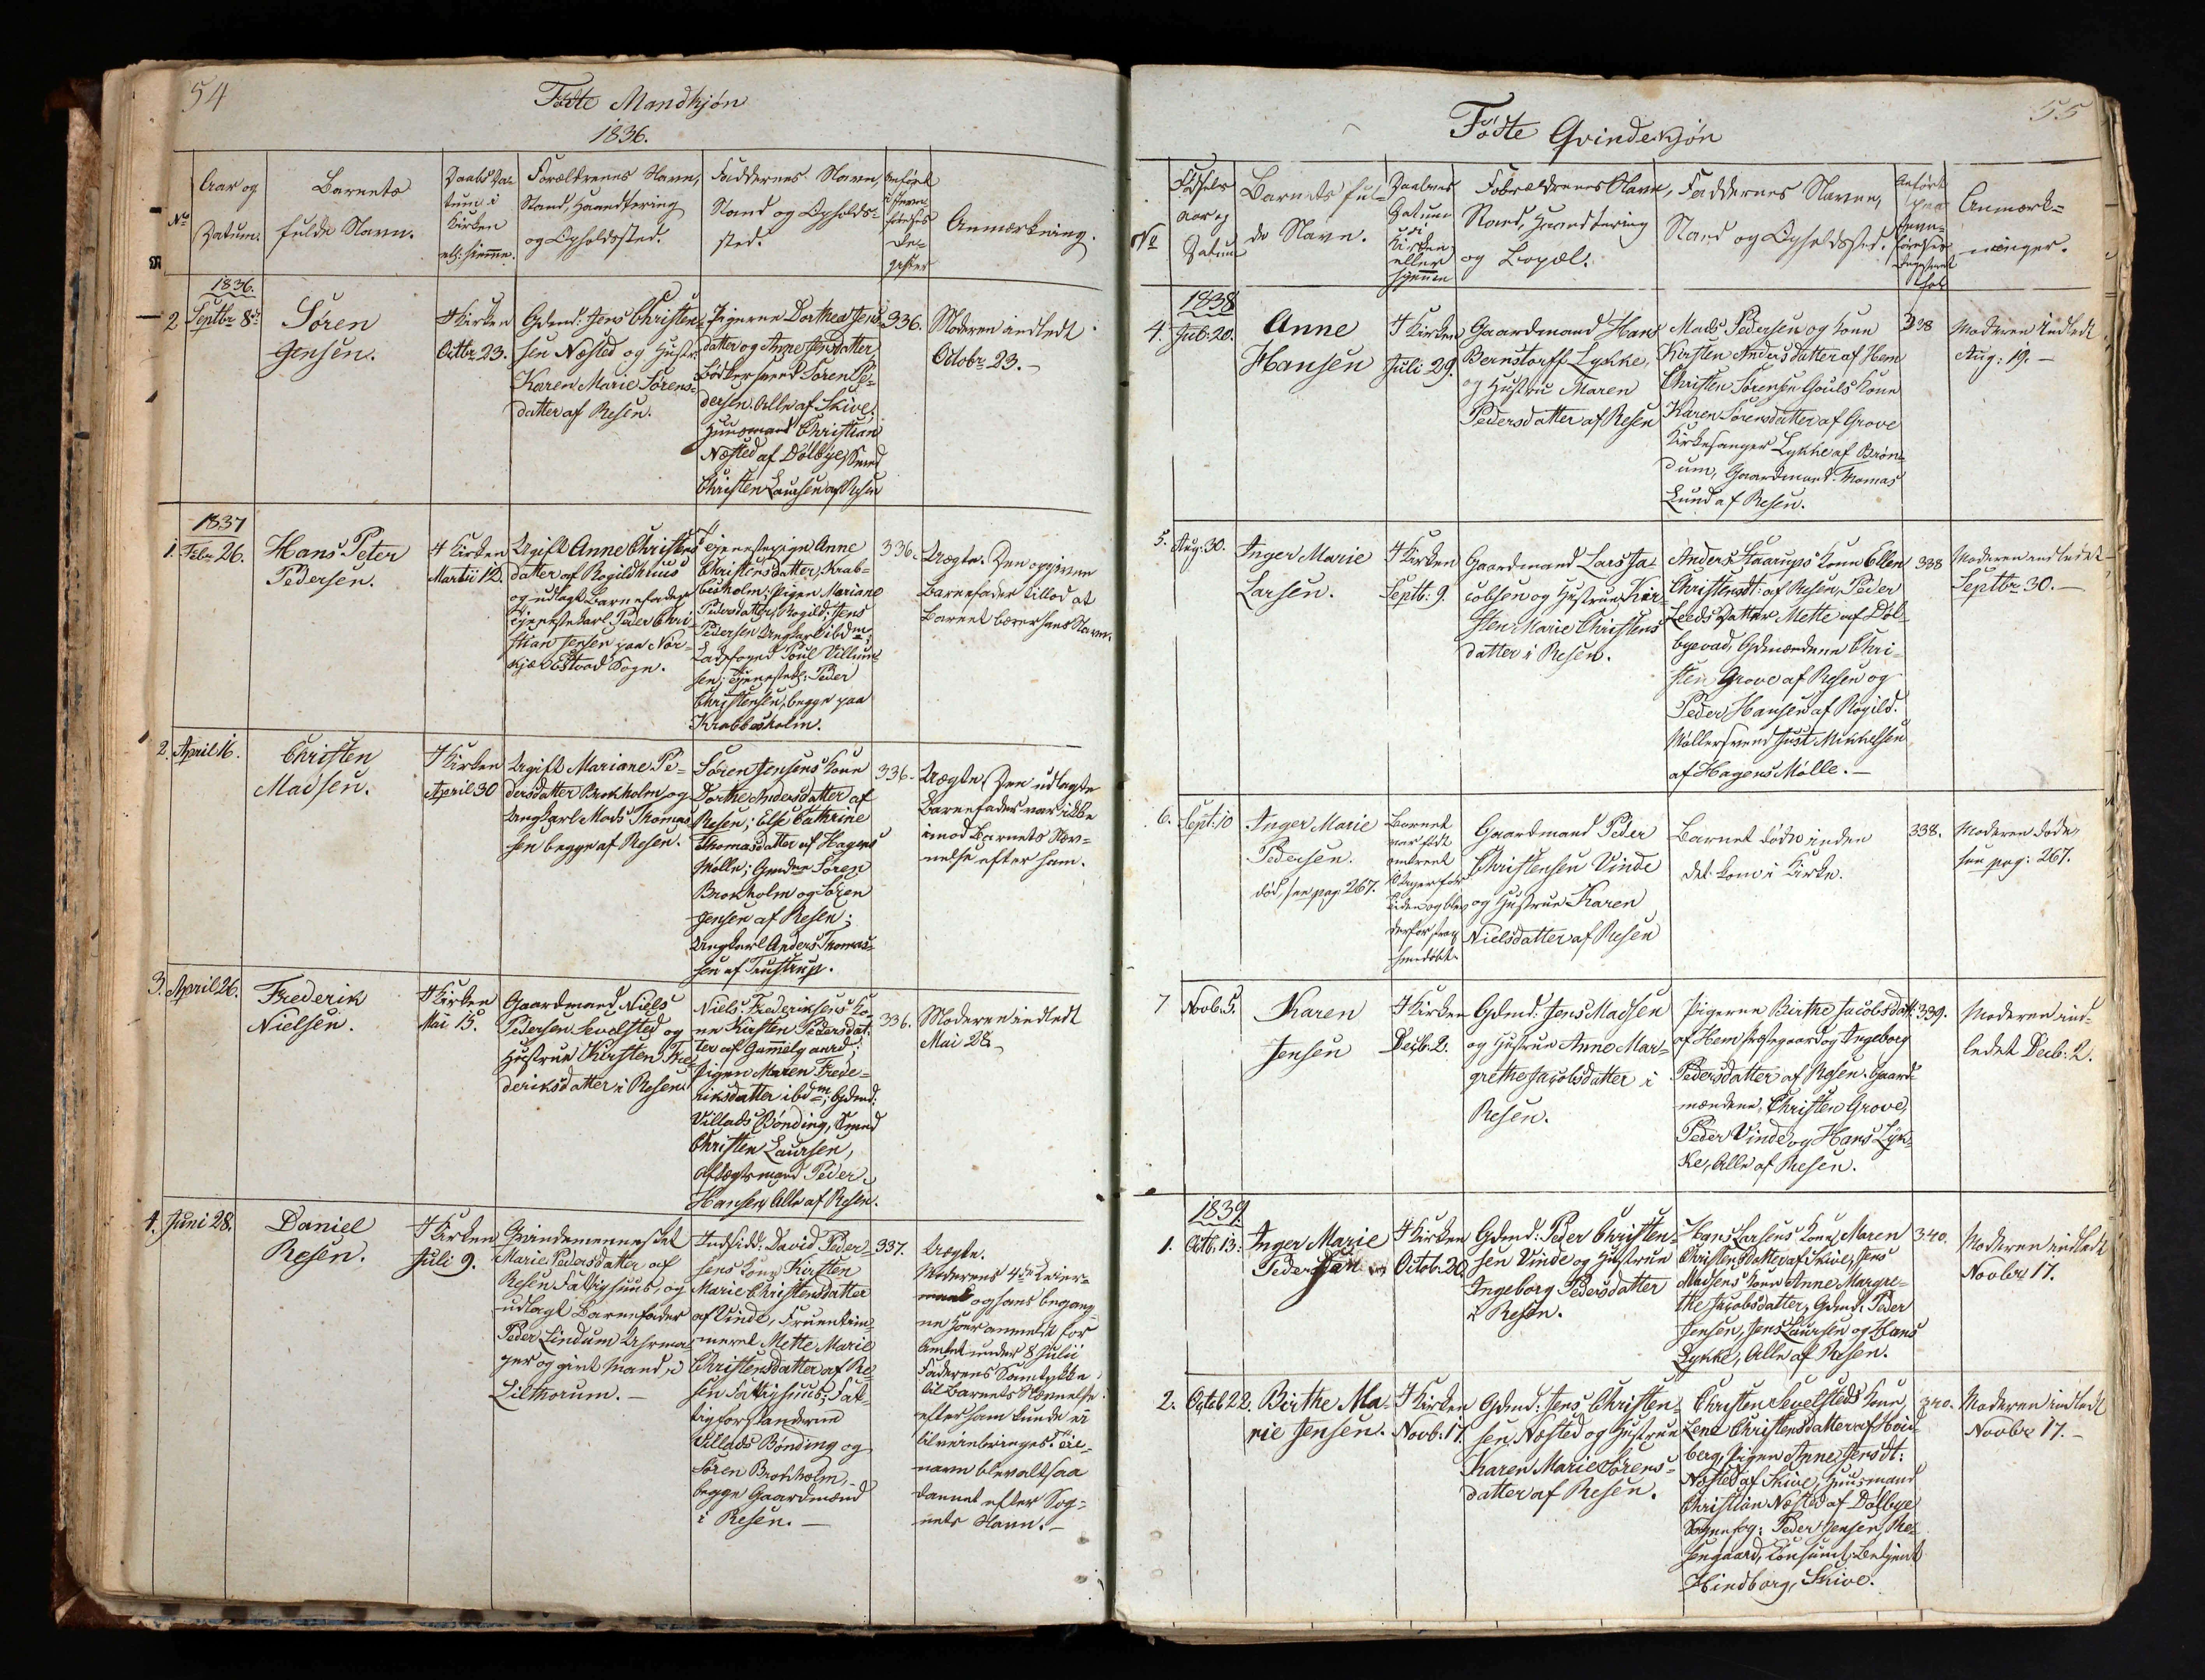 54
Fødte Mandkjøn
1836.
No
Aar og
Datum.
Barnets
fulde Navn.
Daabs Da-
tum i
Kirken
ell: hjemme.
Forældrenes Navn,
Stand, Haandtering
og Opholdssted.
Faddernes Navn,
Stand og Opholds-
sted.
Anført
Anmærkning.
1836.
2
Septbr 8de
Søren
Jensen.
I Kirken
Octbr 23.
Gdmd: Jens Christen-
sen Næsted og Hustr:
Karen Marie Sørens-
datter af Resen.
Pigerne Dorthea Jens-
datter og Anne Jensdatter
Bødkersvend Søren Pe-
dersen. Alle af Skive;
Huusmand Christian
Næsted af Dølbye, Smed
Christen Laursen af Resen
336.
Moderen indledt
Octobr 23.-
1837
1.
Febr 26.
Hans Peter
Pedersen.
I Kirken
Martii 12.
Ugift Anne Christens
datter af Rogildhuus
og udlagt Barnefader
Tjenestekarl Peder Chri-
stian Jensen paa Nør-
kjær Estvad Sogn.
Tjenestepige Anne
Christensdatter, Krab-
besholm; Pigen Mariane
Pedersdatter, Rogild; Jens
Pedersen Ungkarl ibdm;
Ladefoged Poul Villum-
sen; Tjenestek: Peder
Christensen, begge paa
Krabbesholm.
336.
Uægte. Den opgivne
Barnefader tillod at
Barnet bærer hans Navn.
2.
April 16.
Christen
Madsen.
I Kirken
April 30
Ugift Mariane Pe-
dersdatter Brokholm og
Ungkarl Mads Thomas
sen begge af Resen.
Søren Jensens Kone
Dorthe Andersdatter af
Resen; Else Cathrine
Thomasdatter af Hagens
Mølle; Gmdne Søren
Brokholm og Søren
Jensen af Resen;
Ungkarl Anders Thomas-
sen af Trustrup.
336.
Uægte. Den udlagte
Barnefader var ikke
imod Barnets Nav-
nelse efter ham.
3.
April 26.
Frederik
Nielsen.
I Kirken
Mai 15.
Gaardmand Niels
Pedersen Sevelsted og
Hustrue Kirsten Fre-
deriksdatter i Resen.
Niels Frederiksens Ko-
ne Kirsten Pedersdat-
ter af Gammelgaard;
Pigen Maren Frede-
riksdatter ibdm; Gdmd:
Villads Bønding, Smed
Christen Laursen,
Aftægtsmand Peder
Hansen, Alle af Resen.
336.
Moderen indledt
Mai 28.
4.
Juni 28.
Daniel
Resen.
I Kirken
Juli 9.
Qvindemennesket
Marie Pedersdatter af
Resen Fattighuus, og
udlagt Barnefader
Peder Lindum Uhrma-
ger og givt Mand, i
Lilthorum.-
Indsidd: David Peder-
sens Kone Kirsten
Marie Christensdatter
af Vinde, Fruentim-
meret Mette Marie
Christensdatter af Re-
sen Fattighuus; Fat-
tigforstanderne
Villads Bønding og
Søren Brokholm
begge Gaardmænd
i Resen.-
337.
Uægte.
Moderens 4de Leier-
maal og hans begang-
ne Hoer anmeldt for
Amtet under 8 Julii
Faderens Samtykke
til Barnets Navnelse
efter ham kunde ei
tilveiebringes. Til-
navn blev altsaa
dannet efter Sog-
nets Navn.-
55
Fødte Qvindekjøn
No
Fødsels
Aar og
Datum
Barnets ful-
de Navn.
Daabens
Datum
i
Kirken
eller
hjemme
Forældrenes Navn,
Stand, Haandtering
og Bopæl.
Faddernes Navn,
Stand og Opholdssted.
Anført
paa
Anmærk-
ninger.
1838
4.
Juli 20.
Anne
Hansen
I Kirken
Juli 29.
Gaardmand Hans
Bernstorff Lykke,
og Hustru Maren
Pedersdatter af Resen
Mads Pedersen og Kone
Kirsten Andersdatter af Hem
Christen Sørensen Gouls Kone
Karen Sørensdatter af Grove
Kirkesanger Lykke af Brøn-
dum, Gaardmand Thomas
Lund af Resen.
338
Moderen indledt
Aug: 19.-
5.
Aug: 30.
Inger Marie
Larsen.
I Kirken
Septb: 9.
Gaardmand Lars Ja-
cobsen og Hustrue Kir-
sten Marie Christens
datter i Resen.
Anders Staarups Kone Ellen
Christensdt: af Resen, Peder
Leeds Datter Mette af Døl-
byevad, Gdmændene Chri-
sten Grove af Resen og
Peder Hansen af Rogild.
Møllersvend Just Mikkelsen
af Hagens Mølle.-
338
Moderen indledet
Septbr 30.-
6.
Sept: 10
Inger Marie
Pedersen.
død, see pag 267.
Barnet
var født
omtrent
Uger før
Tiden og blev
derfor strax
hjemdøbt.
Gaardmand Peder
Christensen Vinde
og Hustrue Karen
Nielsdatter af Resen
Barnet døde inden
det kom i Kirke.
338.
Moderen døde,
see pag: 267.
7
Novb. 5.
Karen
Jensen
I Kirken
Decb. 2.
Gdmd: Jens Madsen
og Hustrue Anne Mar-
grethe Jacobsdatter i
Resen.
Pigerne Birthe Jacobsdatt:
af Hem Præstegaard og Ingeborg
Pedersdatter af Resen. Gaard-
mændene, Christen Grove,
Peder Vinde og Hans Lyk-
ke, Alle af Resen.
339.
Moderen ind-
ledet Decb: 2.
1839
1.
Octb: 13:
Inger Marie
Pedersen
I Kirken
Octob. 20.
Gdmd: Peder Christen-
sen Vinde og Hustrue
Ingeborg Pedersdatter
i Resen.
Hans Larsens Kone Maren
Christensdatter af Skive, Jens
Madsens Kone Anne Margre-
the Jacobsdatter, Gdmd. Peder
Jensen, Jens Laursen og Hans
Lykke, Alle af Resen.
340.
Moderen indledt
Novbr 17.
2.
Octob 22.
Birthe Ma-
rie Jensen.
I Kirken
Novb. 17.
Gdmd: Jens Christen-
sen Næsted og Hustrue
Karen Marie Sørens-
datter af Resen.
Christen Sevelsteds Kone,
Lene Christensdatter af Høi-
berg, Pigen Anne Jensdt:
Næsted af Skive, Huusmand
Christian Næsted af Dølbye
Sognefog: Peder Jensen, Re-
sengaard, Consumt. Betjent
Hindborg, Skive.
340.
Moderen indledt
Novbr 17.-